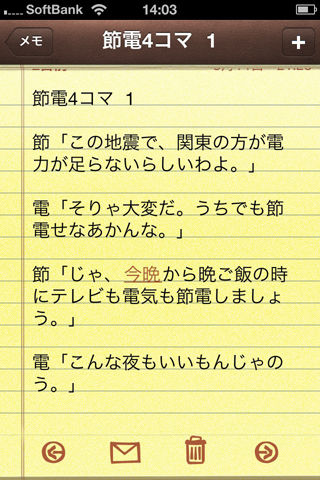 SoftBank 14:03
メモ 節電4コマ 1 +
節電4コマ 1
節「この地震で、関東の方が電
力が足らないらしいわよ。」
電「そりゃ大変だ。うちでも節
電せなあかんな。」
節「じゃ、今晩から晩ご飯の時
にテレビも電気も節電しましょ
う。」
電「こんな夜もいいもんじゃの
う。」